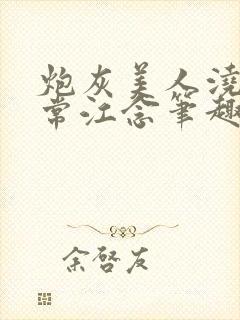 炮灰美人浇
常江念笔趣
余啓友